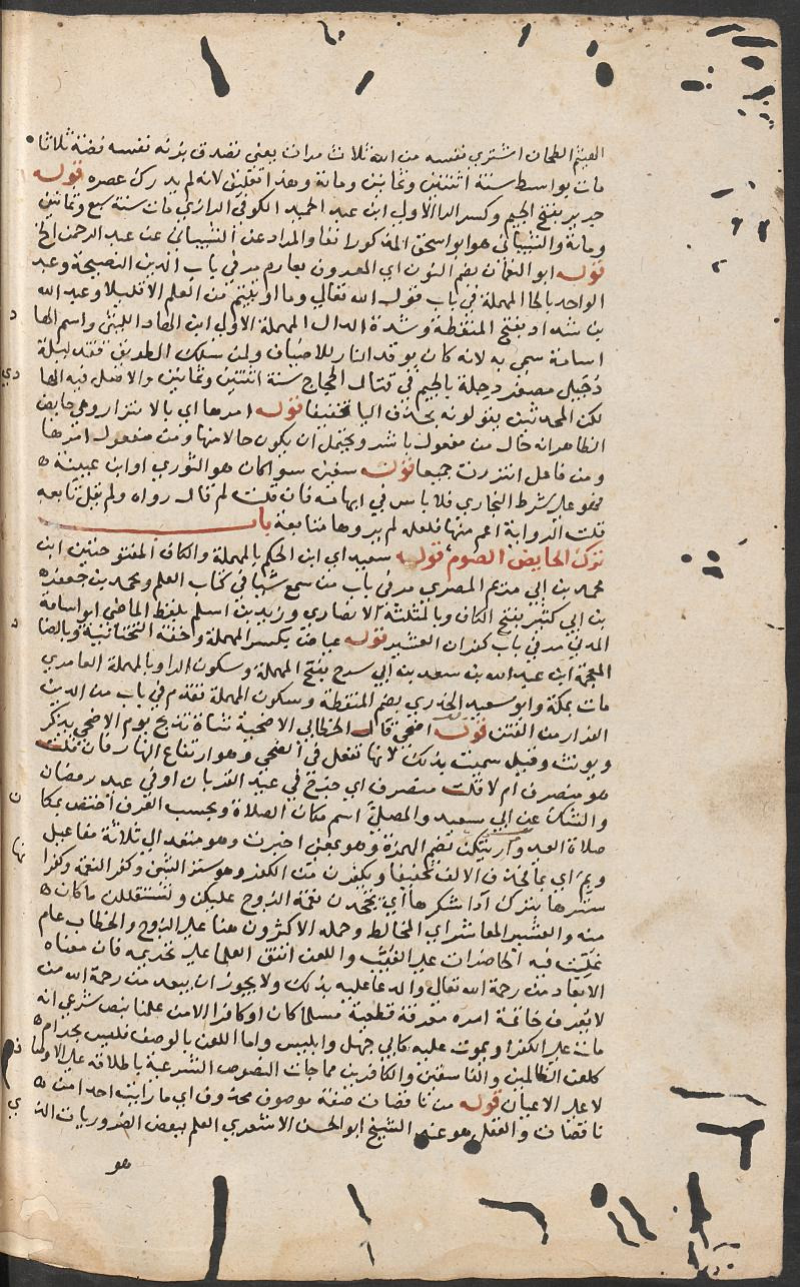 الهيثم الطحان اشتري نفسه من الله ثلاث مرات يعني تصدق بزنه نفسه فضة ثلاثا
مات بواسط سنة اثنتين وثمانين ومائة وهذا تعليق لانه لم يدرك عصره قوله
جرير بفتح الجيم وكسر الرا الاولي ابن عبد الحميد الكوفي الرازي مات سنة سبع وثمانين
ومائة والشيباني هو ابو اسحق المذكور انفا والمراد عن الشيباني عن عبد الرحمن الخ
قوله ابو النعمان بضم النون اي المعروف بعارم مر في باب الدين النصيحة وعبد
الواحد بالحا المهملة في باب قول الله تعالي وما اوتيتم من العلم الا قليلا وعبد الله
بن شداد بفتح المنقطة وشدة الدال المهملة الاولي ابن الهاد الليثي واسم الها
اسامة سمي به لانه كان يوقد النار للاضياف ولمن سلك الطريق فقد ليلة
دجيل مصغر دجلة بالجيم في قتال الحجاج سنة اثنتين وثمانين والاصل فيه الها
لكن المحدثين يقولونه بحذف اليا تخفيفا قوله امرها اي بالاتزار وهي حايض
الظاهر انه حال من مفعول باشر ويحتمل ان يكون حالا منها ومن مفعول امرها
ومن فاعل اتزرت جميعا قوله سفين سوا كان هو الثوري او ابن عيينة
فهو علي شرط البخاري فلا باس في ابهامه فان قلت لم قال رواه ولم يقل تابعه
قلت الرواية اعم منها فلعله لم يروها متابعة باب
ترك الحايض الصوم قوله سعيد اي ابن الحكم بالمهملة والكاف المفتوحتين ابن
محمد بن ابي مريم المصري مر في باب من سمع شيا في كتاب العلم ومحمد بن جعفر
بن ابي كثير بفتح الكاف وبالمثلثة الانصاري وزيد بن اسلم بلفظ الماضي ابو اسامة
المدني مر في باب كفران العشير قوله عياض بكسر المهملة وخفة التحتانية وبالضا
المعجمة ابن عبد الله بن سعد بن ابي سرح بفتح المهملة وسكون الرا وبالمهملة العامري
مات بمكة وابو سعيد الخدري بضم المنقطة وسكون المهملة تقدم في باب من الدين
الفرار من الفتن قوله اضحي قال الخطابي الاضحية شاة تذبح يوم الاضحي يذكر
ويونث وقيل سميت بذلك لانها تفعل في الضحي وهو ارتفاع النهار فان قلت
هو منصرف ام لا قلت منصرف اي خرج في عيد القربان او في عيد رمضان
والشك عن ابي سعيد والمصلي اسم مكان الصلاة وبحسب العرف اختص بمكا
صلاة العيد واريتكن بضم الهمزة وهو بمعني اخبرت وهو متعد الي ثلاثة مفاعيل
وبم اي بما بحذف الالف تخفيفا ويكفرن من الكفر وهو ستر الشي وكفر النعمة وكفرا
سترها بترك ادا شكرها اي يجحدن نعمة الزوج عليكن وتستقللن ما كان
منه والعشير المعاشر اي المخالط وحمله الاكثرون هنا علي الزوج والخطاب عام
غلبت فيه الحاضرات علي الغيب واللعن اتفق العلما علي تحريمه فان معناه
الابعاد من رحمة الله تعالي والدعا عليه بذلك ولا يجوز ان يبعد من رحمة الله من
لا يعرف خاتمة امره معرفة قطعية مسلما كان او كافرا الا من علمنا بنص شرعي انه
مات علي الكفر او يموت عليه كابي جهل وابليس واما اللعن بالوصف فليس بحرام
كلعن الظالمين والفاسقين والكافرين مما جات النصوص الشرعية باطلاقه علي الاوصا
لا علي الاعيان قوله من ناقصات صفة موصوف محذوف اي ما رايت احدا من
ناقصات والعقل هو عند الشيخ ابو الحسن الاشعري العلم ببعض الضروريات الذ
هو